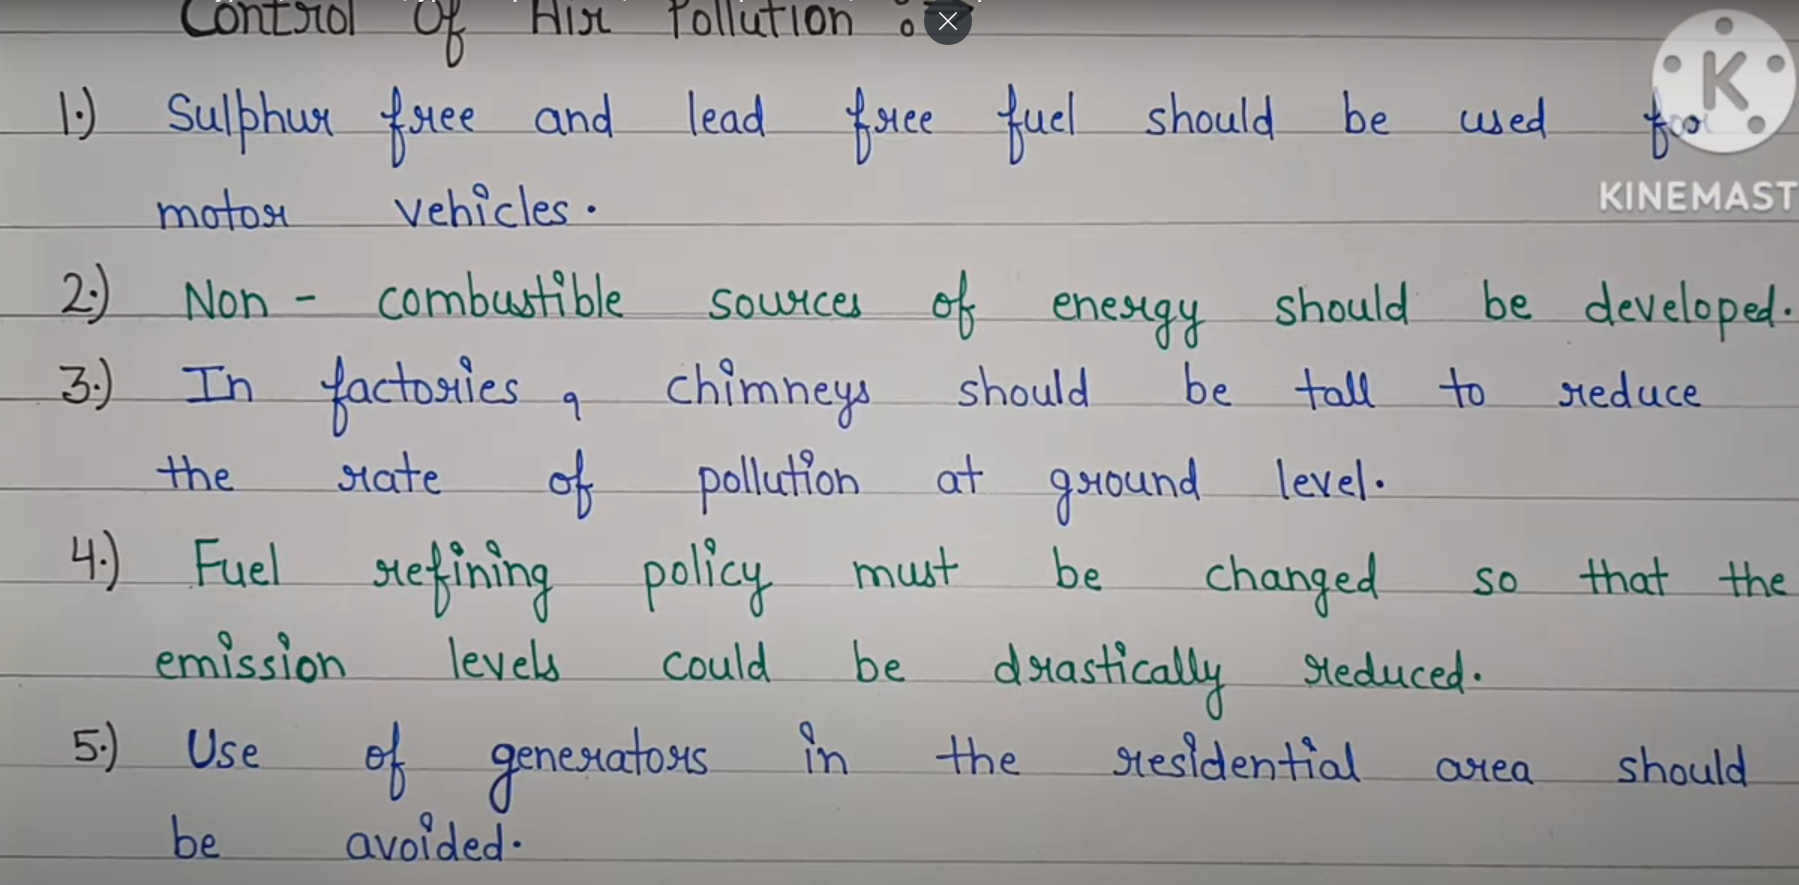 Control Of Air Pollution :-
1.) Sulphur free and lead free fuel should be used for
motor vehicles.
2.) Non - combustible sources of energy should be developed.
3.) In factories, chimneys should be tall to reduce
the rate of pollution at ground level.
4.) Fuel refining policy must be changed so that the
emission levels could be drastically reduced.
5.) Use of generators in the residential area should
be avoided.
K
KINEMAST